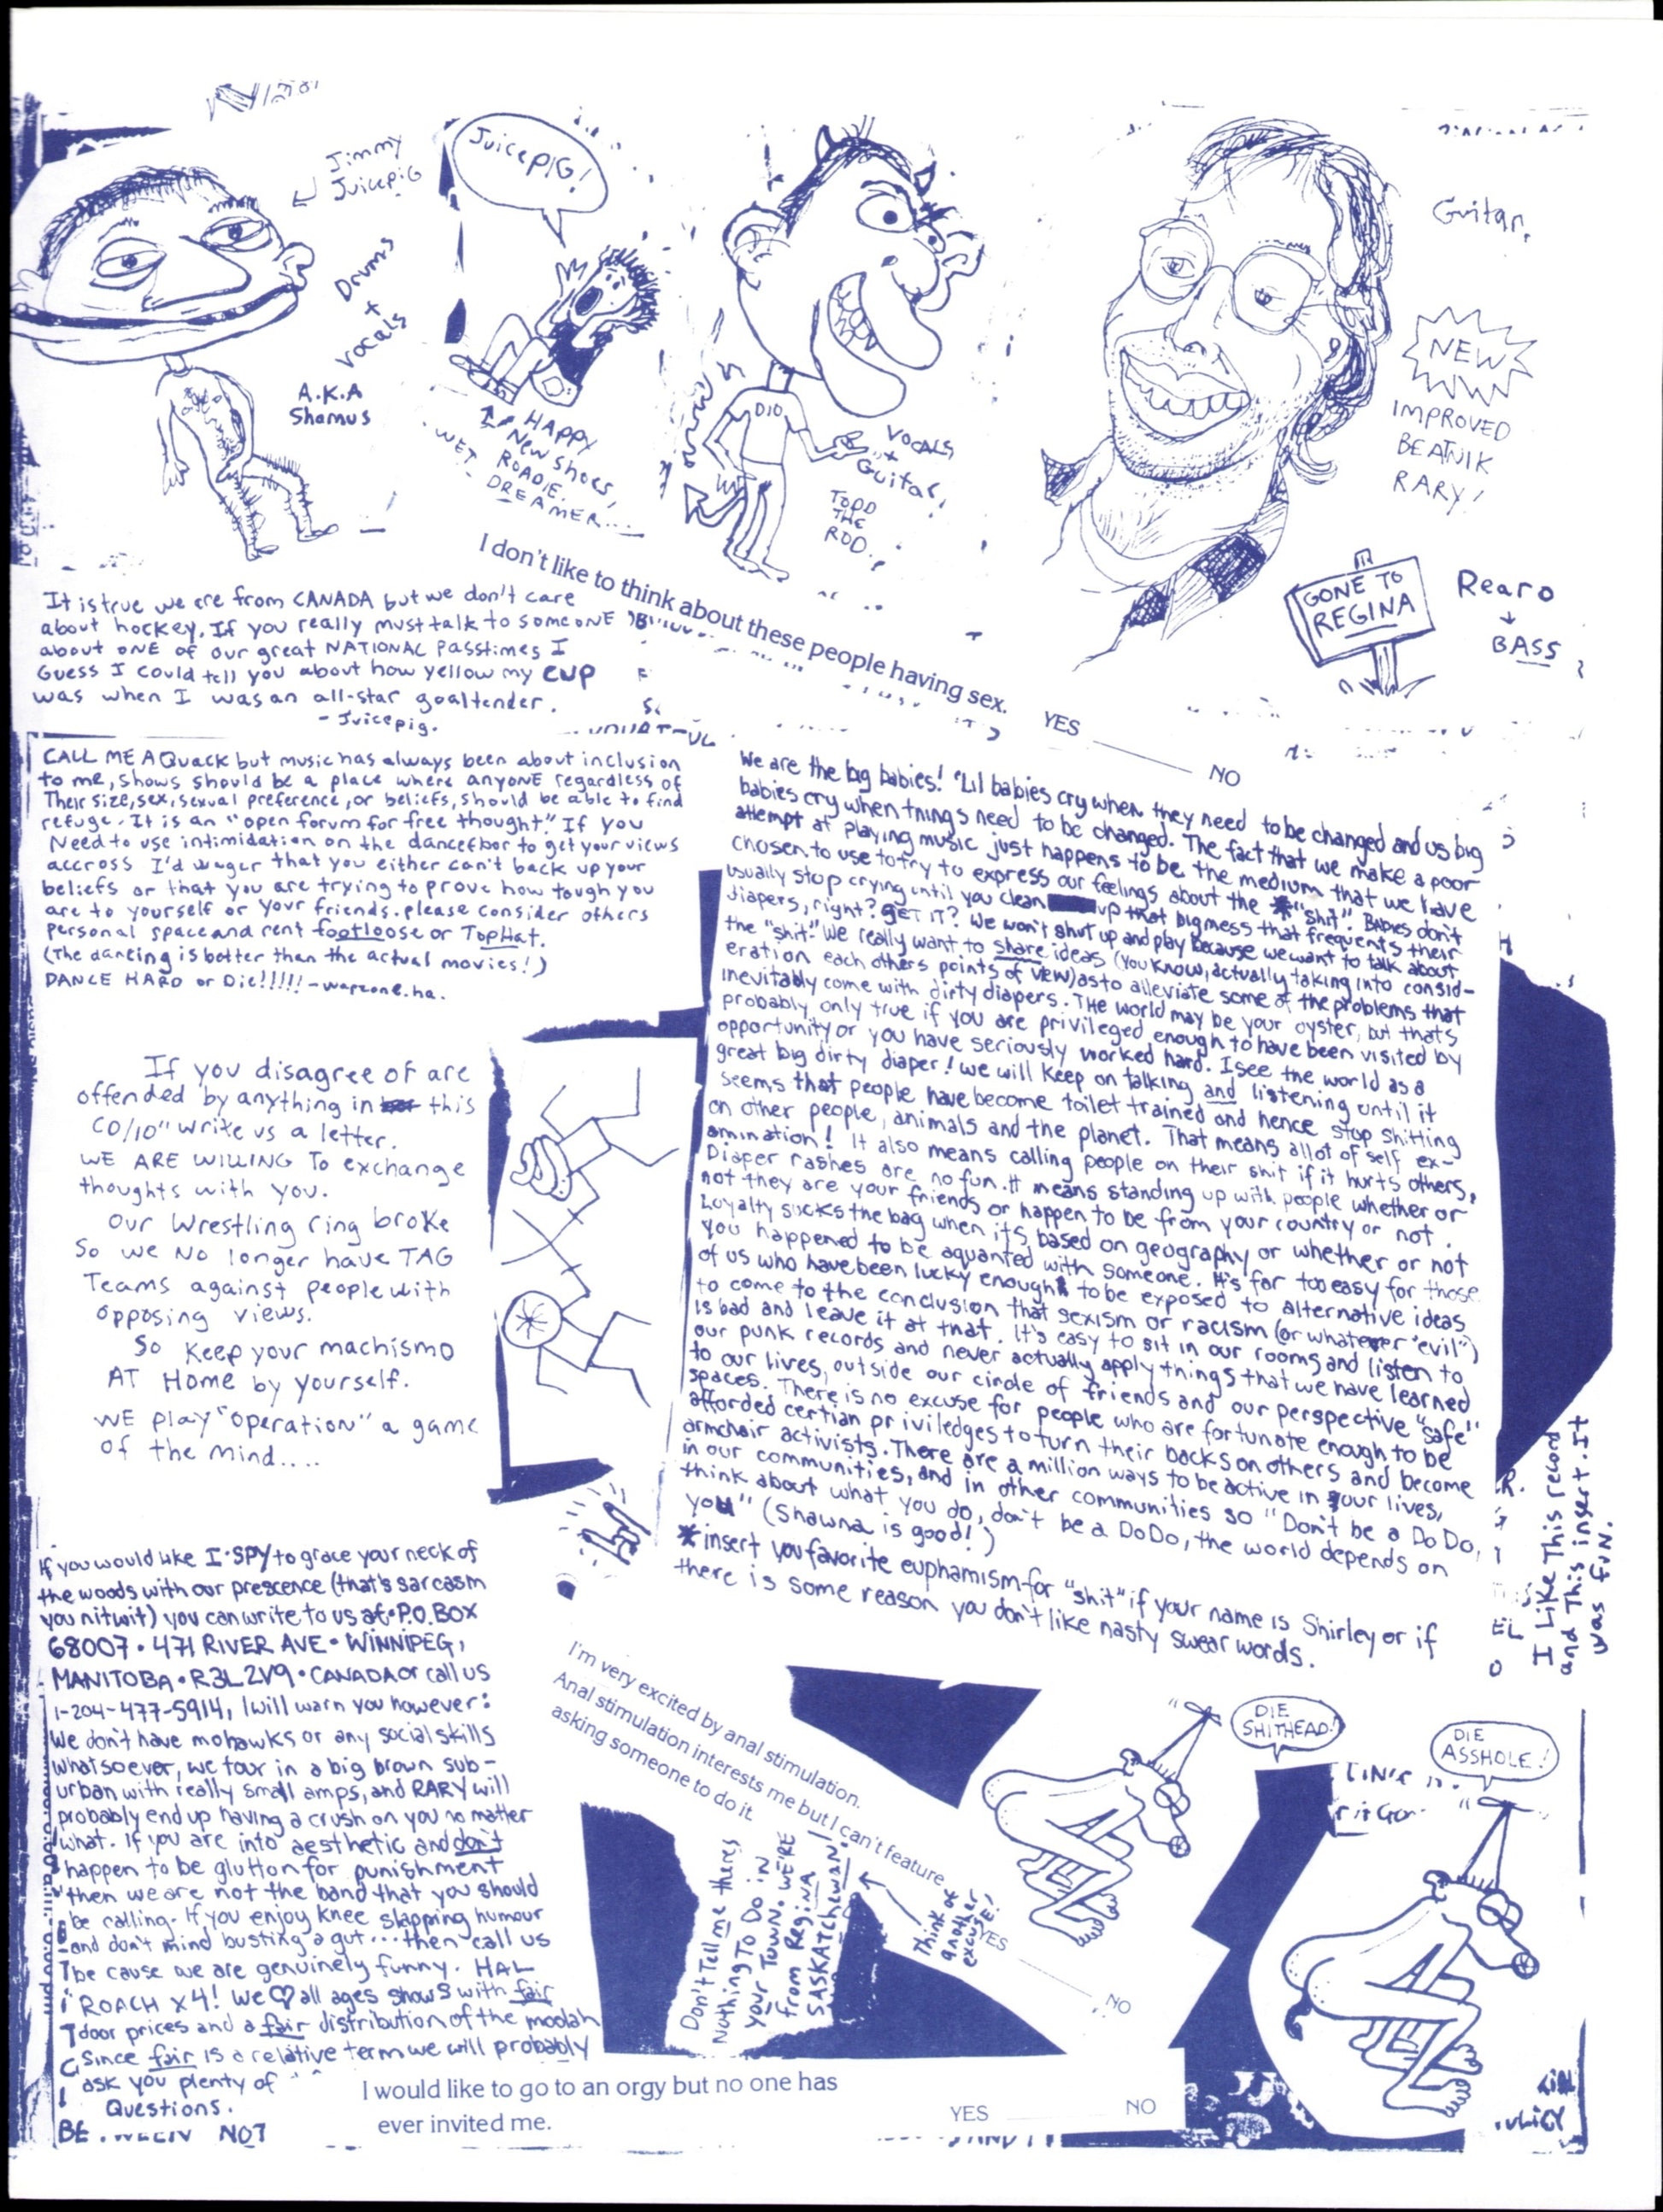 Jimmy
Juicepig
Drums
+
vocals
A.K.A
Shamus
JuicePIG!
HAPPY
New Shoes,
ROADIE.
WET
DREAMER...
DIO
VOCALS
+
Guitar!
TODD
THE
ROD.
Guitar,
NEW
IMPROVED
BEATNIK
RARY!
GONE TO
REGINA
Rearo
BASS
I don't like to think about these people having sex.
YES
NO
It is true we are from CANADA but we don't care
about hockey. If you really must talk to someone
about ONE of our great NATIONAL Passtimes I
Guess I could tell you about how yellow my CUP
was when I was an all-star goaltender.
- Juicepig.
CALL ME A Quack but music has always been about inclusion
to me, shows should be a place where anyone regardless of
Their size, sex, sexual preference, or beliefs, should be able to find
refuge. It is an "open forum for free thought." If you
Need to use intimidation on the dancefloor to get your views
accross I'd wager that you either can't back up your
beliefs or that you are trying to prove how tough you
are to yourself or your friends. please consider others
personal space and rent footloose or TopHat.
(The dancing is better than the actual movies!)
DANCE HARD or Die!!!!! - warzone.ha.
We are the big babies! 'Lil babies cry when they need to be changed and us big
babies cry when things need to be changed. The fact that we make a poor
attempt at playing music just happens to be the medium that we have
chosen to use to try to express our feelings about the *"shit". Babies don't
usually stop crying until you clean up that big mess that frequents their
diapers, right? GET IT? We won't shut up and play because we want to talk about
the "shit". We really want to share ideas (You know, actually taking into consid-
eration each others points of view) as to alleviate some of the problems that
inevitably come with dirty diapers. The world may be your oyster, but thats
probably only true if you are privileged enough to have been visited by
opportunity or you have seriously worked hard. I see the world as a
great big dirty diaper! we will keep on talking and listening until it
seems that people have become toilet trained and hence stop shitting
on other people, animals and the planet. That means allot of self ex-
amination! It also means calling people on their shit if it hurts others,
Diaper rashes are no fun. It means standing up with people whether or
not they are your friends or happen to be from your country or not.
Loyalty sucks the bag when its based on geography or whether or not
you happened to be aquanted with someone. It's far too easy for those
of us who have been lucky enough to be exposed to alternative ideas
to come to the conclusion that sexism or racism (or whatever "evil")
is bad and leave it at that. It's easy to sit in our rooms and listen to
our punk records and never actually apply things that we have learned
to our lives, outside our circle of friends and our perspective "safe"
spaces. There is no excuse for people who are fortunate enough to be
afforded certian priviledges to turn their backs on others and become
armchair activists. There are a million ways to be active in your lives,
in our communities, and in other communities so "Don't be a Do Do,
think about what you do, don't be a DoDo, the world depends on
you" (Shawna is good!)
*insert you favorite euphamism for "shit" if your name is Shirley or if
there is some reason you don't like nasty swear words.
If you disagree of are
offended by anything in this
CD/10" write us a letter.
WE ARE WILLING To exchange
thoughts with you.
Our Wrestling ring broke
So we No longer have TAG
Teams against people with
opposing views.
So Keep your machismo
AT Home by yourself.
WE play "operation" a game
of the mind.....
I Like This record
and This insert. It
was fun.
If you would like I·SPY to grace your neck of
the woods with our prescence (that's sarcasm
you nitwit) you can write to us at·P.O. BOX
68007 · 471 RIVER AVE · WINNIPEG,
MANITOBA · R3L 2V9 · CANADA or call us
1-204-477-5914, I will warn you however:
We don't have mohawks or any social skills
whatsoever, we tour in a big brown sub-
urban with really small amps, and RARY will
probably end up having a crush on you no matter
what. If you are into aesthetic and don't
happen to be glutton for punishment
then we are not the band that you should
be calling. If you enjoy knee slapping humour
and don't mind busting a gut...then call us
be cause we are genuinely funny. HAL
ROACH x4! We ♡ all ages shows with fair
door prices and a fair distribution of the moolah
Since fair is a relative term we will probably
ask you plenty of
Questions.
NOT
I'm very excited by anal stimulation.
Anal stimulation interests me but I can't feature
asking someone to do it.
YES
NO
Think of
another
excuse!
Don't Tell me theres
Nothing To Do in
your Town. WE'RE
from Regina
SASKATchewan!
DIE
SHITHEAD!
DIE
ASSHOLE!
I would like to go to an orgy but no one has
ever invited me.
YES
NO